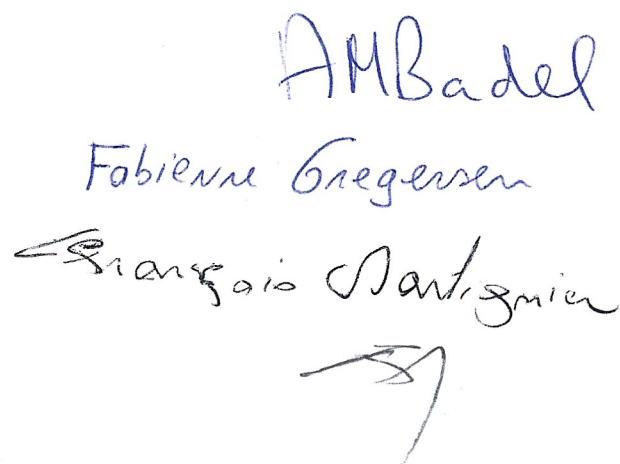 AMBadel
Fabienne Gregersen
François Martignier